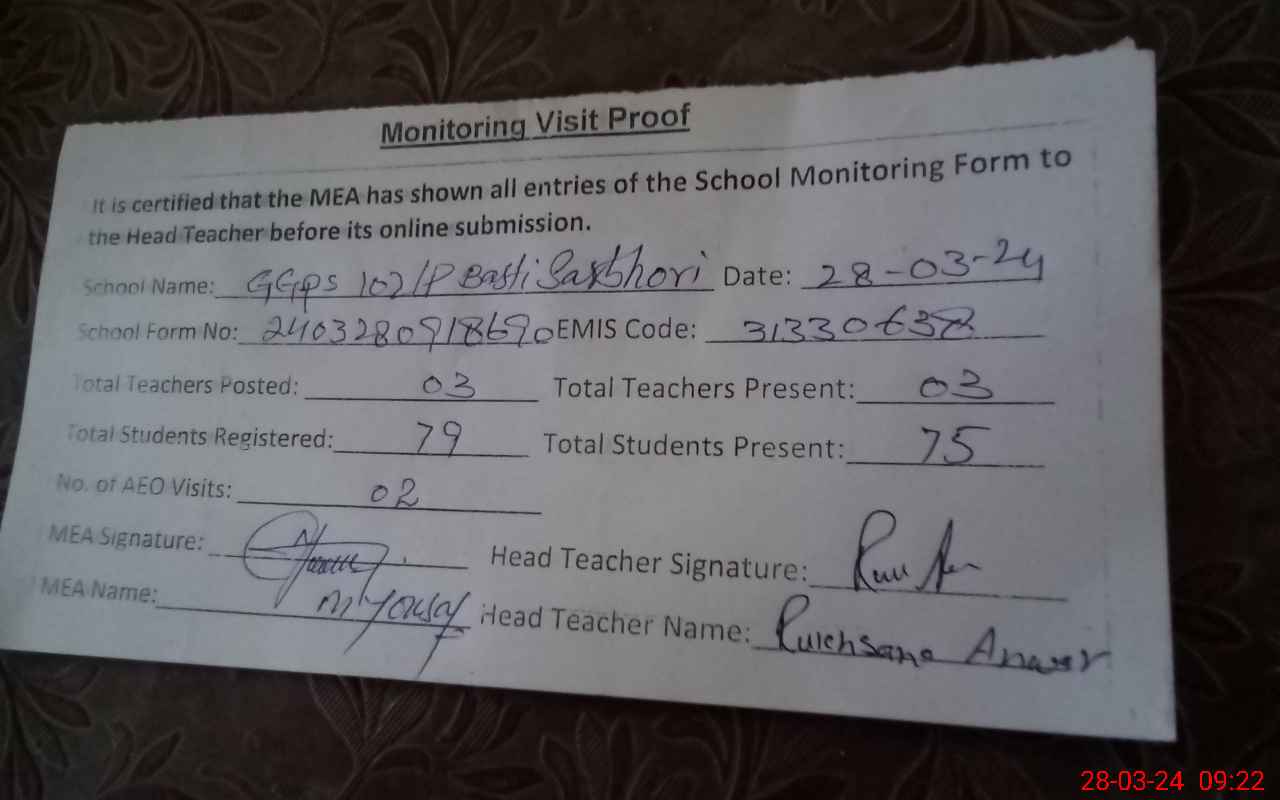 Monitoring Visit Proof
It is certified that the MEA has shown all entries of the School Monitoring Form to
the Head Teacher before its online submission.
School Name: GGPS 102/P Basti Date: 28-03-24
School Form No: 240328091869０ EMIS Code: 31330638
Total Teachers Posted: 03 Total Teachers Present: 03
Total Students Registered: 79 Total Students Present: 75
No. of AEO Visits: 02
MEA Signature: Head Teacher Signature:
MEA Name: M Yousaf Head Teacher Name: Rukhsana Anwer
28-03-24 09:22